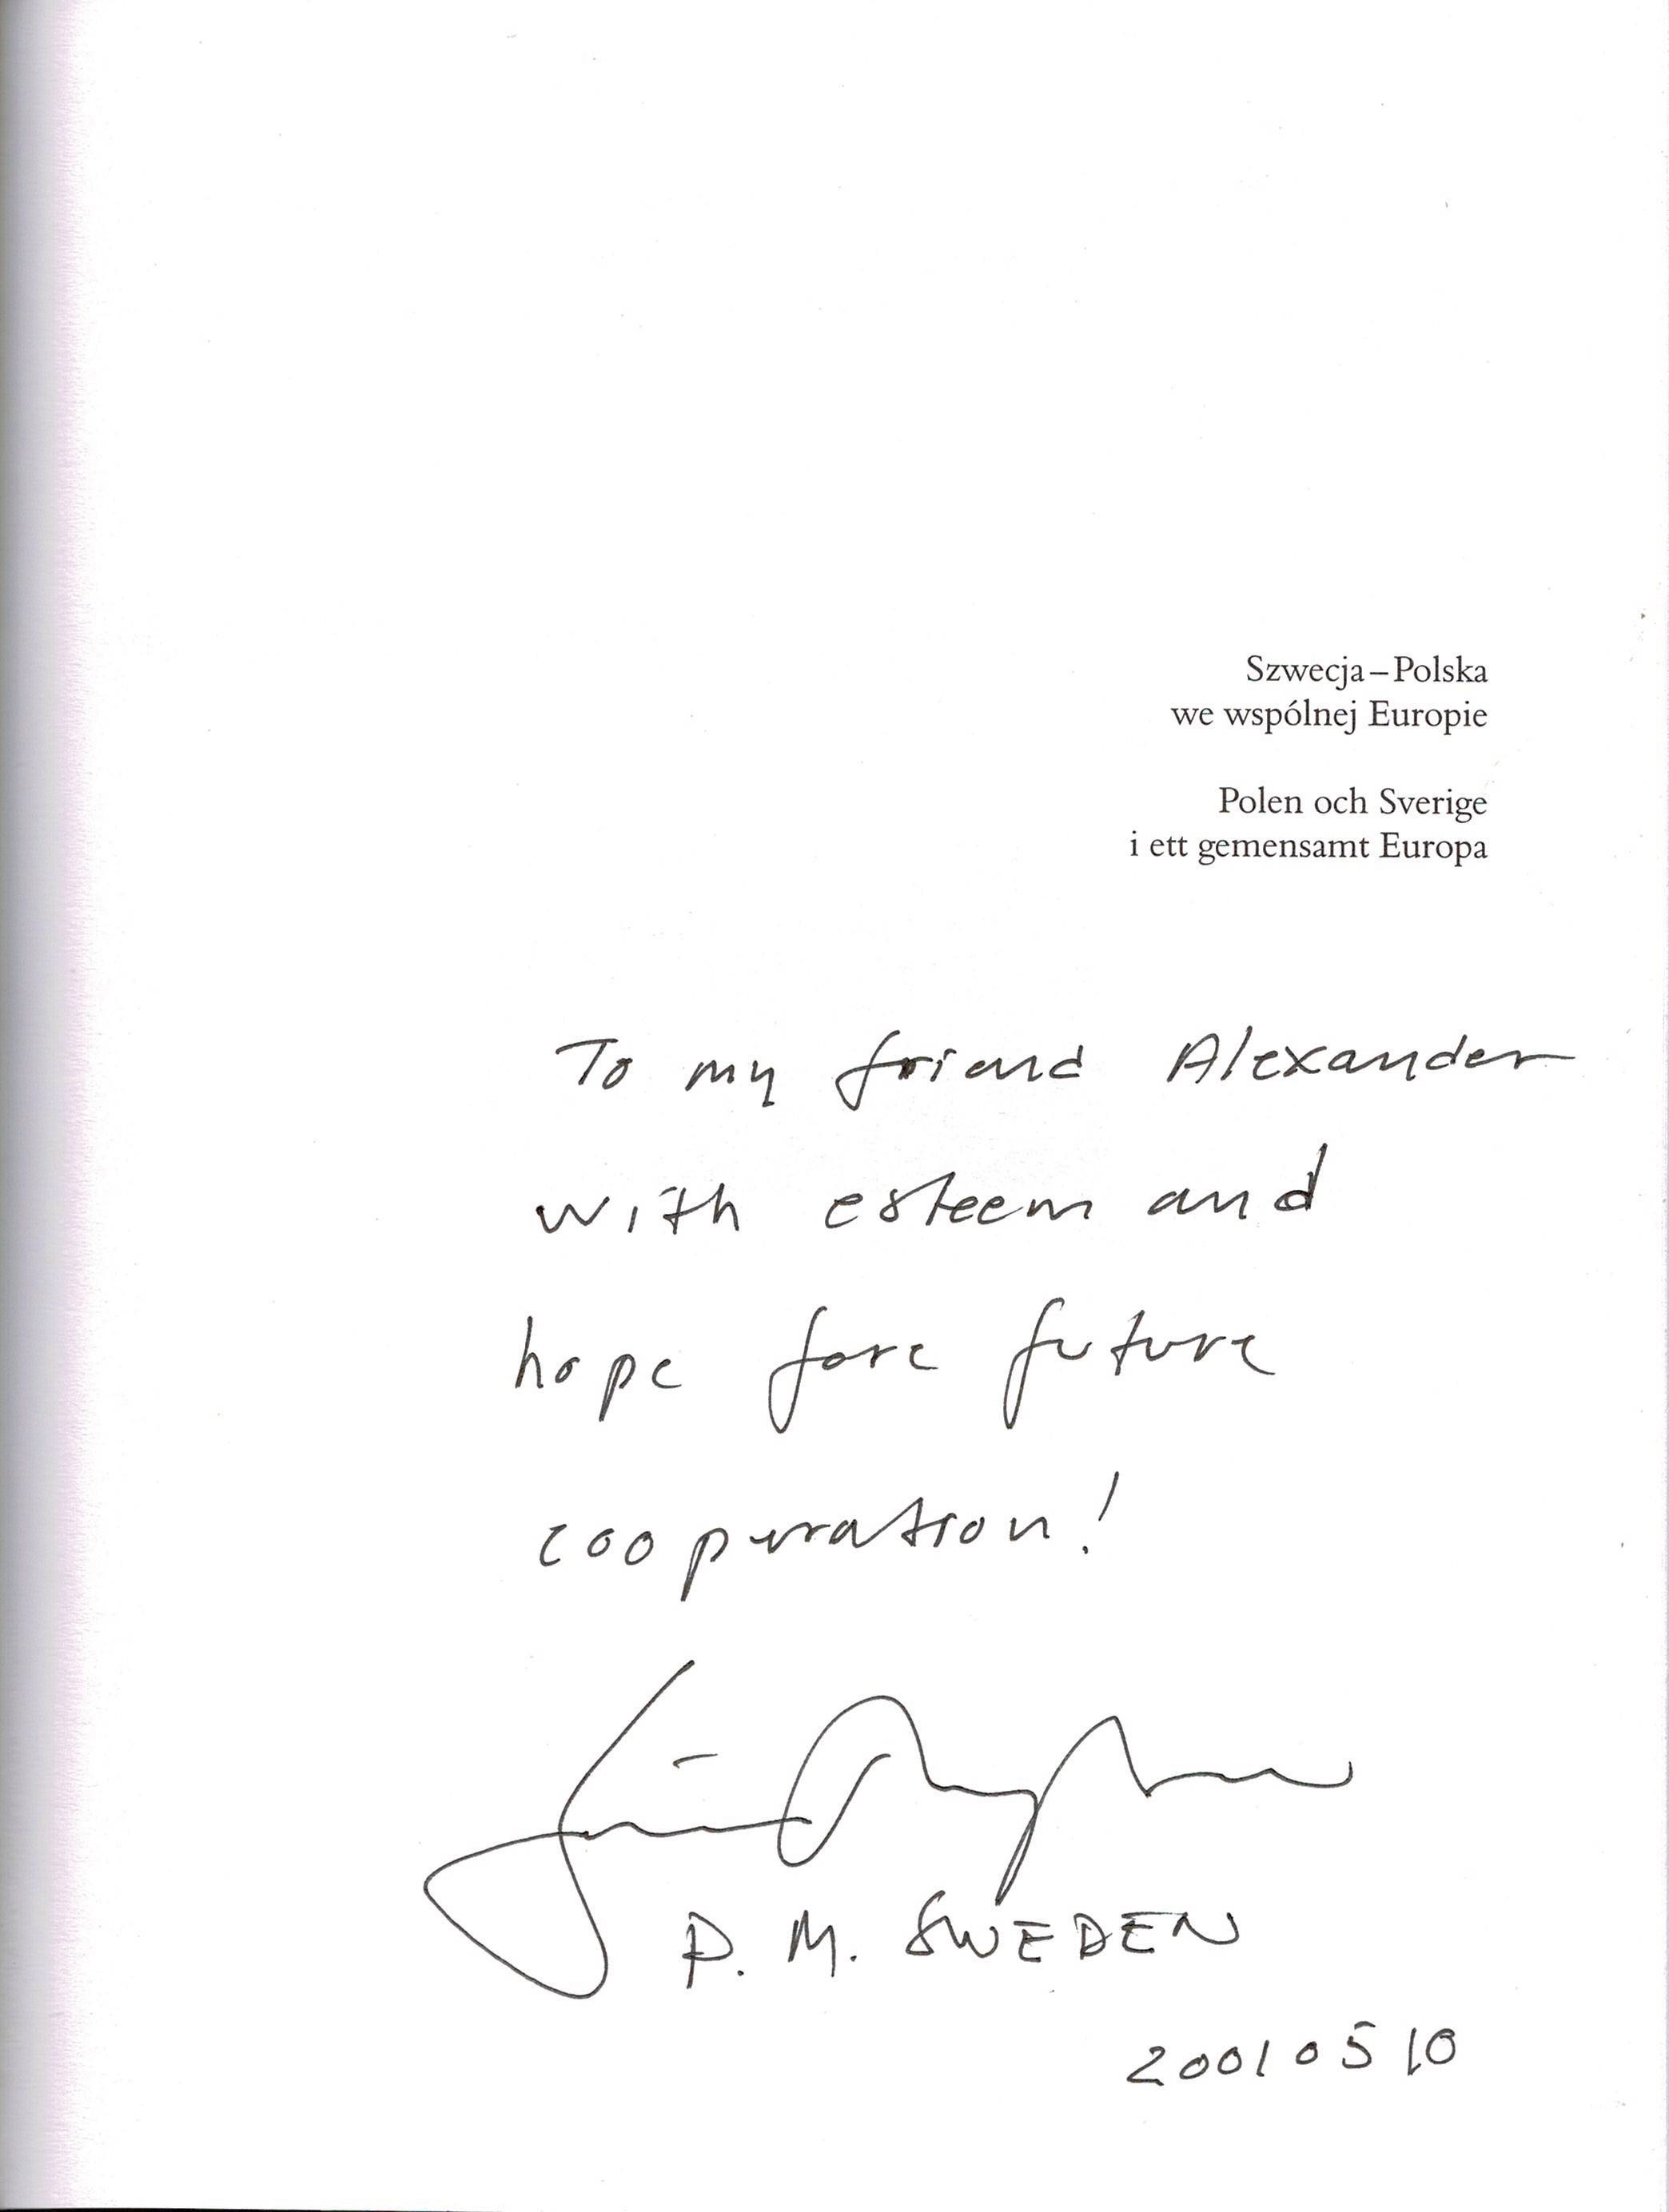 Szwecja – Polska
we wspólnej Europie
Polen och Sverige
i ett gemensamt Europa
To my friend Alexander
with esteem and
hope fore future
cooperation!
P. M. SWEDEN
2001 05 10